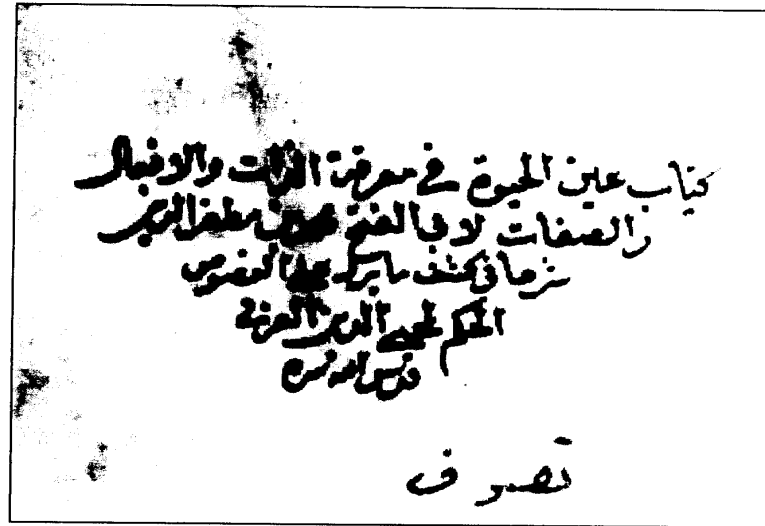 كتاب عين الحيوة في معرفة الذات والافعال
والصفات لابي الفتح محمد بن مظفر الدين
كشف ما يرد على الفصوص
الحكم لمحيي الدين العربي
قدس الله سره
تصوف